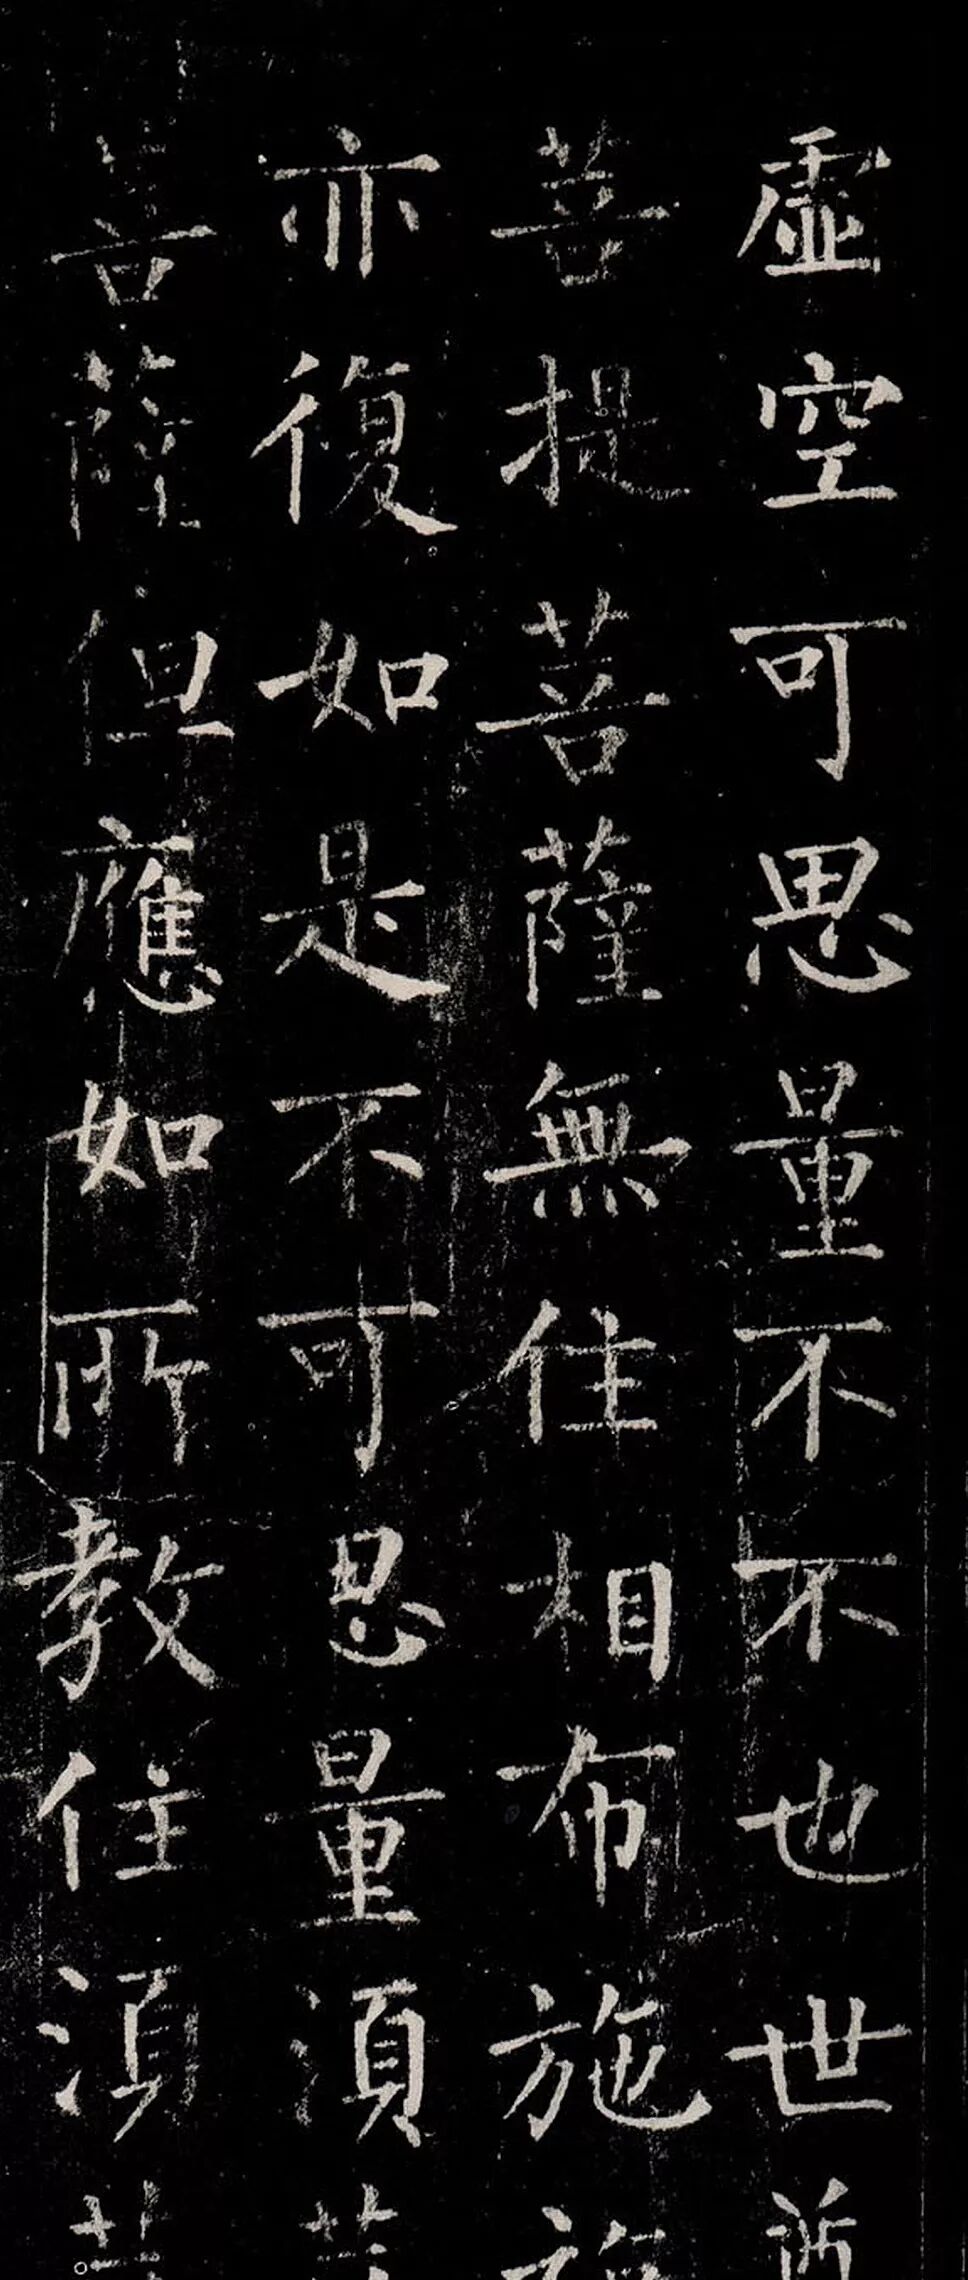 虚空可思量不不也世
菩提菩薩無住相布施
亦復如是不可思量湏
菩薩但應如所教住湏